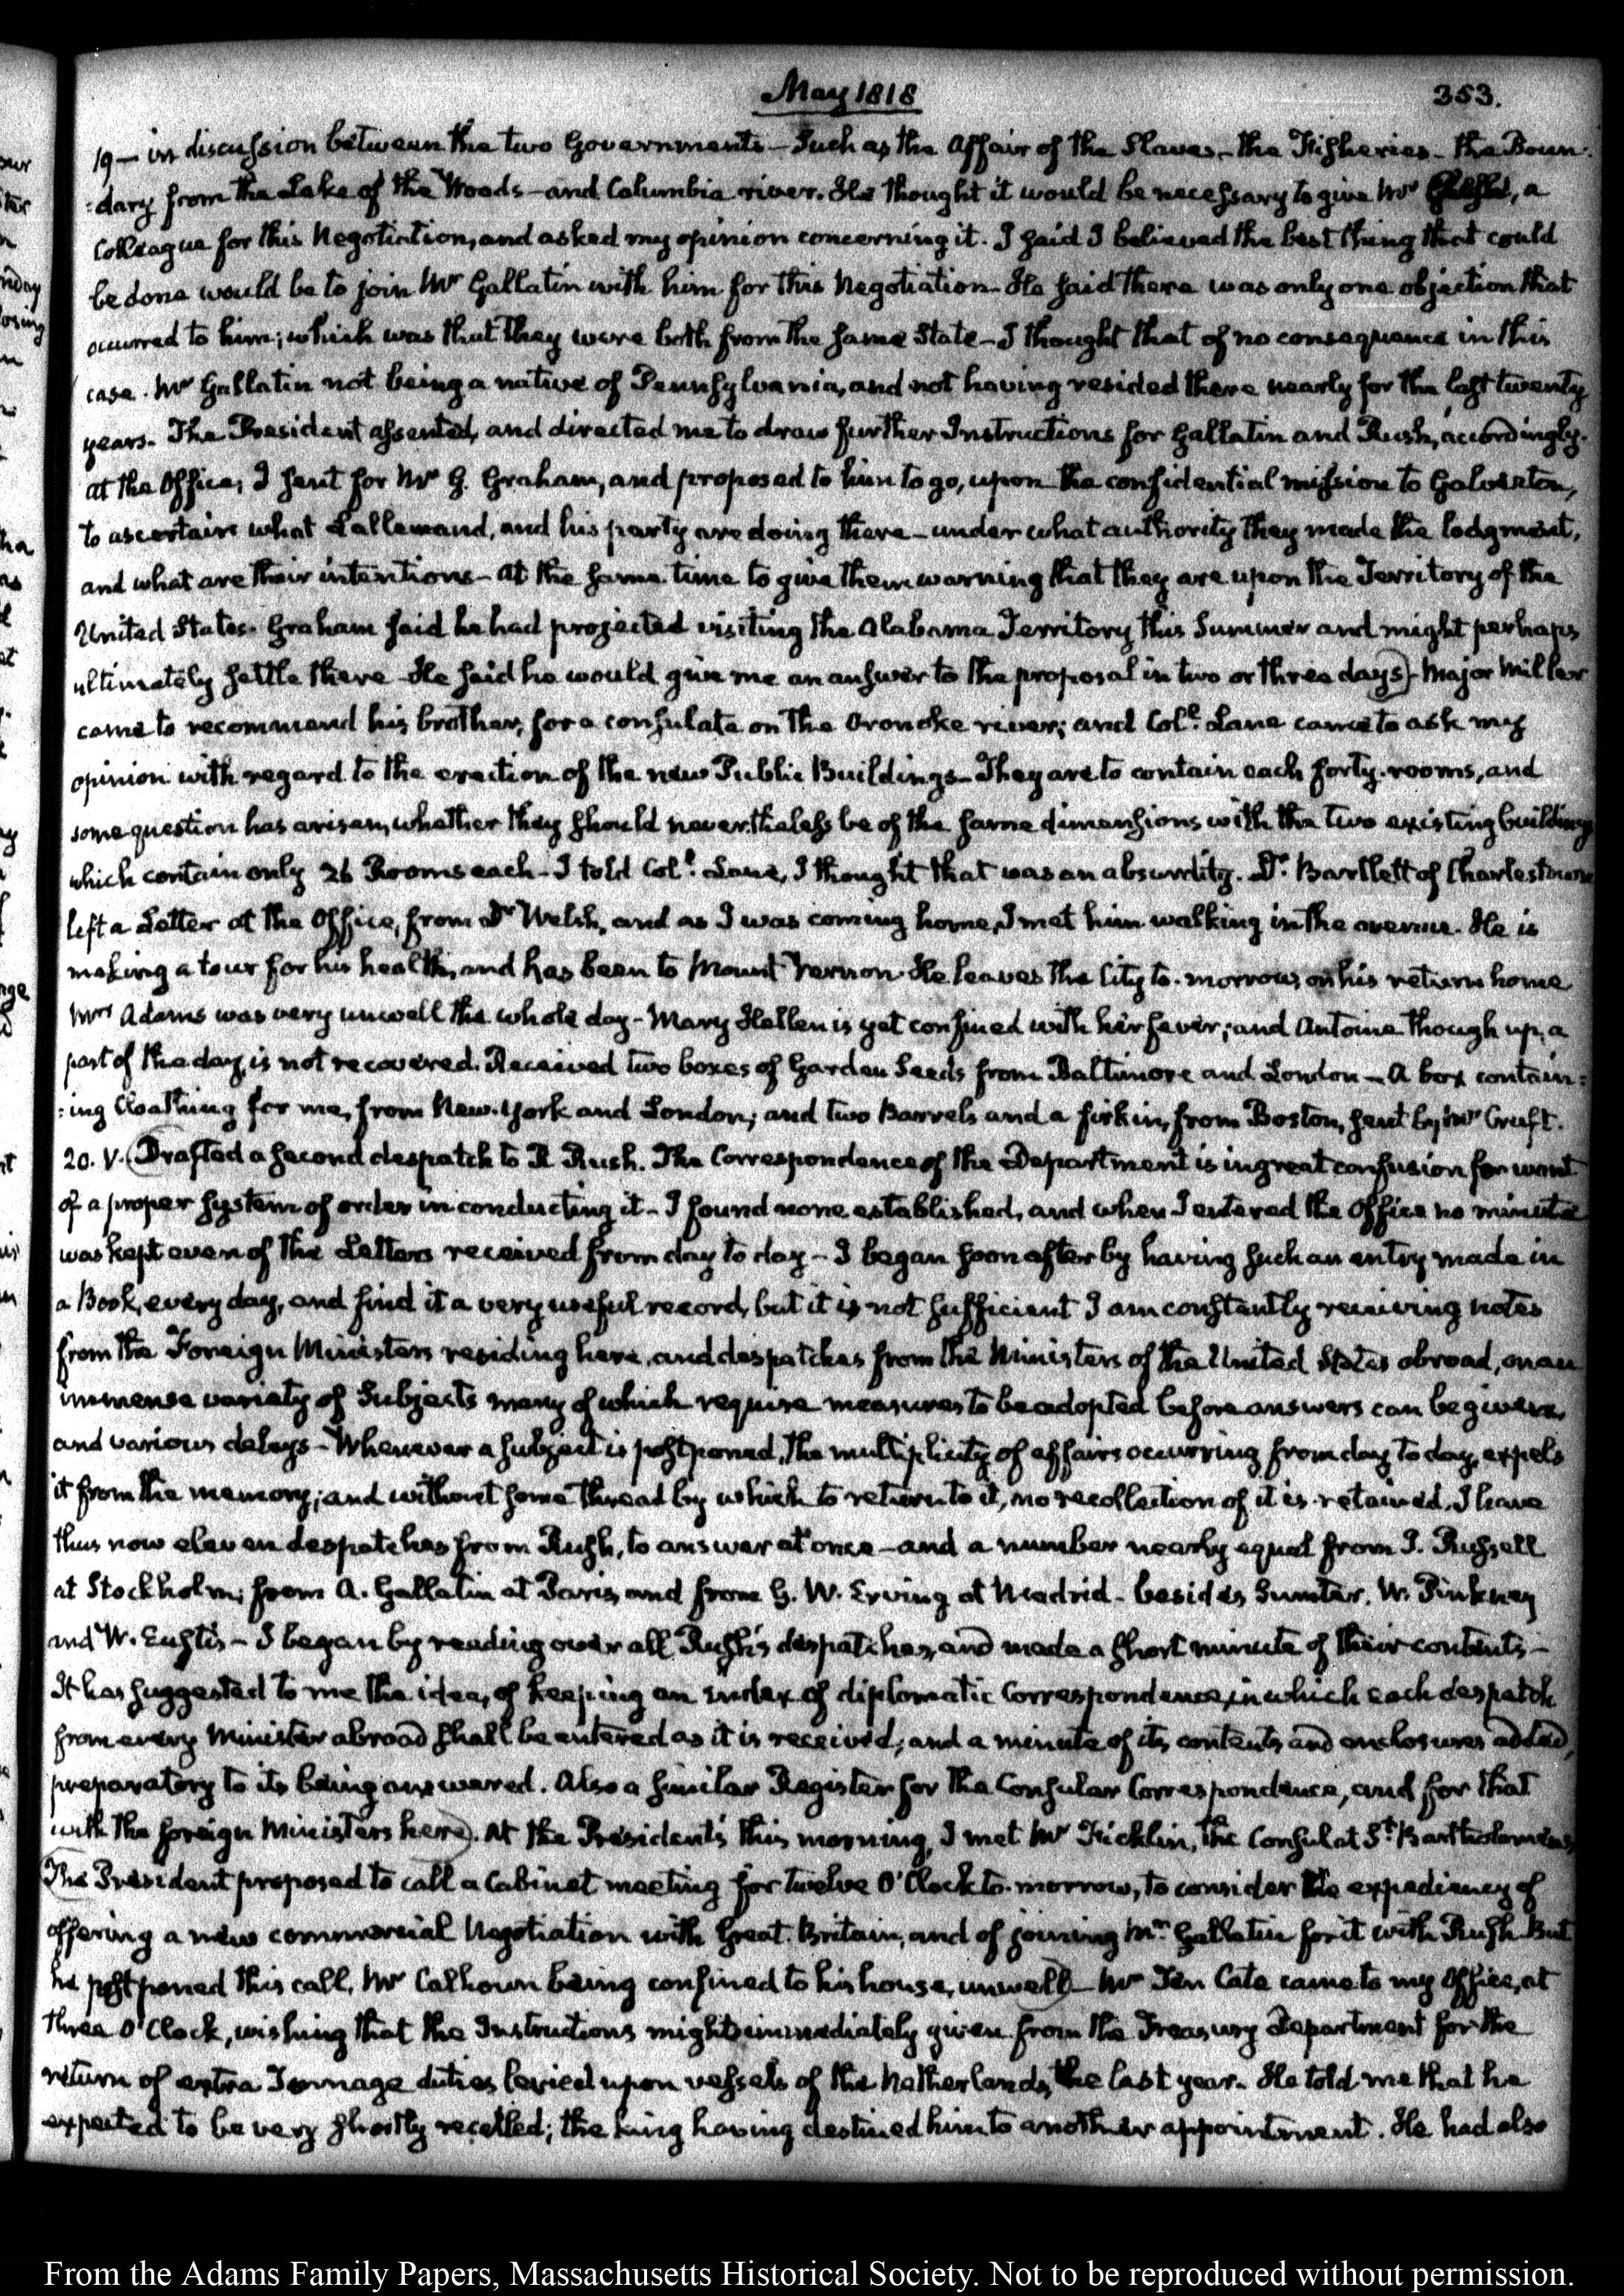 May 1818
353.
19 — in discussion between the two Governments — Such as the Affair of the Slaves — the Fisheries — the Boun-
:dary from the Lake of the Woods — and Columbia river. He thought it would be necessary to give Mr , a
Colleague for this Negotiation, and asked my opinion concerning it. I said I believed the best thing that could
be done would be to join Mr Gallatin with him for this Negotiation — He said there was only one objection that
occurred to him; which was that they were both from the same State — I thought that of no consequence in this
case. Mr Gallatin not being a native of Pennsylvania, and not having resided there nearly for the last twenty
years. The President assented, and directed me to draw further Instructions for Gallatin and Rush, accordingly.
At the Office, I sent for Mr G. Graham, and proposed to him to go, upon the confidential mission to Galveston,
to ascertain what Lallemand, and his party are doing there — under what authority they made the lodgment,
and what are their intentions — At the same time to give them warning that they are upon the Territory of the
United States. Graham said he had projected visiting the Alabama Territory this Summer and might perhaps
ultimately settle there — He said he would give me an answer to the proposal in two or three days) — Major Miller
came to recommend his brother, for a consulate on the Oronoke river; and Col.l Lane came to ask my
opinion with regard to the erection of the new Public Buildings — They are to contain each forty rooms, and
some question has arisen, whether they should nevertheless be of the same dimensions with the two existing buildings
which contain only 26 Rooms each — I told Col.l Lane, I thought that was an absurdity. Dr Bartlett of Charlestown
left a Letter at the Office, from Dr Welsh, and as I was coming home, I met him walking in the avenue. He is
making a tour for his health, and has been to Mount Vernon. He leaves the City to-morrow, on his return home
Mrs Adams was very unwell the whole day — Mary Hellen is yet confined with her fever; and Antoine though up, a
part of the day, is not recovered. Received two boxes of Garden Seeds from Baltimore and London — A box contain:
:ing Cloathing for me, from New-York and London; and two Barrels and a firkin, from Boston, sent by Mr Cruft.
20. V. (Drafted a second despatch to R Rush. The Correspondence of the Department is in great confusion for want
of a proper system of order in conducting it — I found none established, and when I entered the Office no minute
was kept even of the Letters received from day to day — I began soon after by having such an entry made in
a Book, every day, and find it a very useful record, but it is not sufficient I am constantly receiving notes
from the Foreign Ministers residing here, and despatches from the Ministers of the United States abroad, on an
immense variety of Subjects many of which require measures to be adopted before answers can be given,
and various delays — Whenever a subject is postponed, the multiplicity of affairs occurring from day to day, expels
it from the memory; and without some thread by which to return to it, no recollection of it is retained. I have
thus now eleven despatches from Rush, to answer at once — and a number nearly equal from J. Russell
at Stockholm; from A. Gallatin at Paris, and from G. W. Erving at Madrid — besides Sumter. W. Pinkney
and W. Eustis — I began by reading over all Rush's despatches, and made a short minute of their contents —
It has suggested to me the idea, of keeping an index of diplomatic Correspondence, in which each despatch
from every Minister abroad shall be entered as it is received; and a minute of its contents and enclosures added,
preparatory to its being answered. Also a similar Register for the Consular Correspondence, and for that
with the foreign Ministers here). At the President's this morning, I met Mr Ficklin, the Consul at St Bartholomews
(The President proposed to call a Cabinet meeting for twelve O'Clock to-morrow, to consider the expediency of
offering a new commercial Negotiation with Great-Britain, and of joining Mr Gallatin for it with Rush But
he postponed this call, Mr Calhoun being confined to his house, unwell) — Mr Ten Cate came to my Office, at
three O'Clock, wishing that the Instructions might immediately given from the Treasury Department for the
return of extra Tonnage duties levied upon vessels of the Netherlands, the last year. He told me that he
expected to be very shortly recalled; the king having destined him to another appointment. He had also
From the Adams Family Papers, Massachusetts Historical Society. Not to be reproduced without permission.